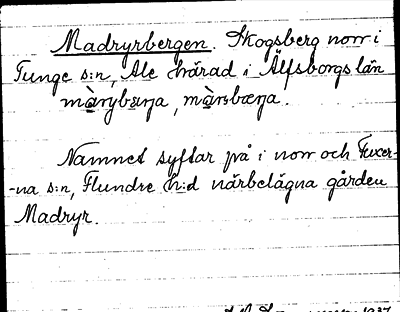 Madryrbergen. Skogsberg norr i
Tunge s:n, Ale härad i Älfsborgs län
Namnet syftar på i norr och Fuxer-
-na s:n, Flundre h:d närbelägna gården
Madryr.
1937